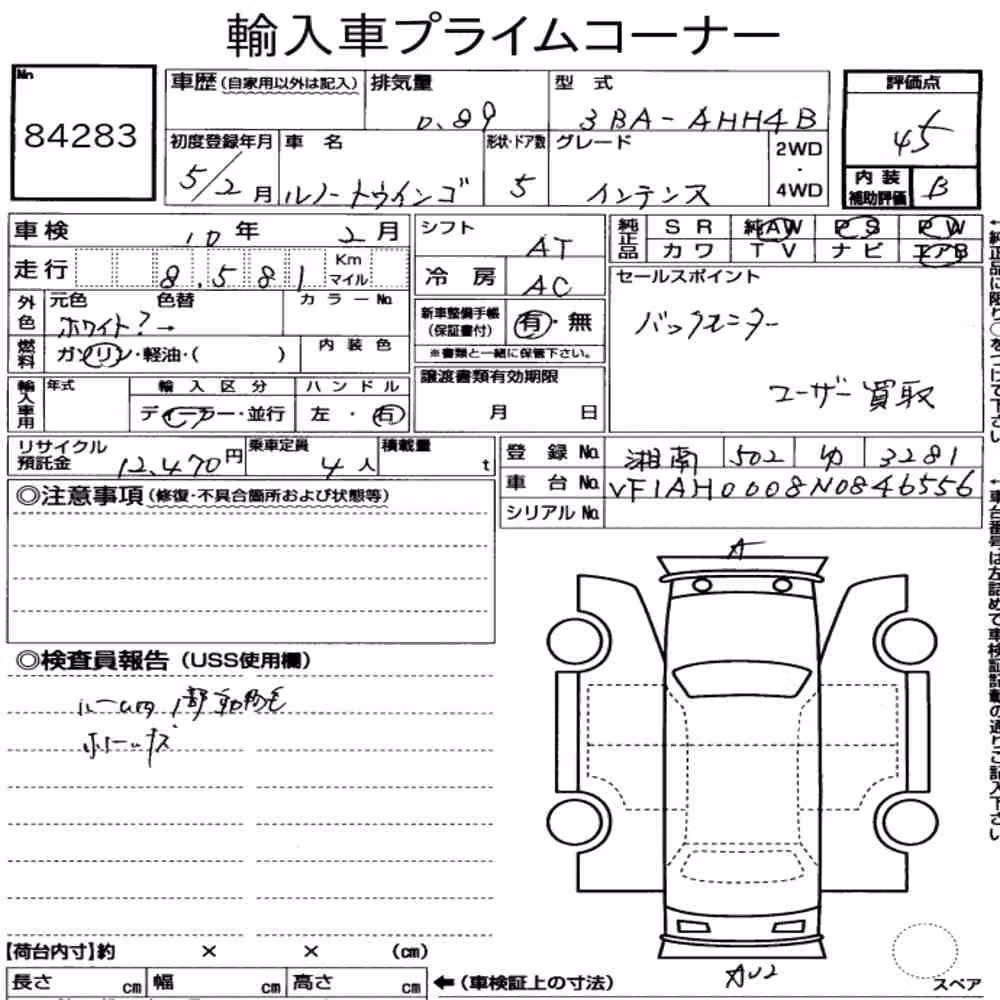 輸入車プライムコーナー
No
84283
車歴（自家用以外は記入） 排気量 0.89 型式 3BA-AHH4B
評価点 45
初度登録年月 5/2月 車名 ルノートウインゴ 形状・ドア数 5 グレード インテンス 2WD・4WD
内装補助評価 B
車検 10年 2月
走行 8.581 Km マイル
シフト AT
冷房 AC
純正品 SR 純AW PS PW
カワ TV ナビ エアB
外色 元色 色替 カラーNo.
ホワイト?→
燃料 ガソリン・軽油・（ ） 内装色
新車整備手帳（保証書付） 有・無
※書類と一緒に保管下さい。
セールスポイント
バックモニター
ユーザー買取
輸入車用 年式 輸入区分 ハンドル
ディーラー・並行 左・右
譲渡書類有効期限
月 日
リサイクル預託金 12,470円 乗車定員 4人 積載量 t
登録No. 湘南 502 ゆ 3281
車台No. VF1AH0008N0846556
シリアルNo.
◎注意事項（修復・不具合箇所および状態等）
◎検査員報告（USS使用欄）
ルーム内1部動物毛
ホイールキズ
A
AU2
スペア
【荷台内寸】約 × × （cm）
長さ cm 幅 cm 高さ cm
←（車検証上の寸法）
←純正品に限り○をつけて下さい
←車台番号は左詰めで車検証記載の通りご記入下さい